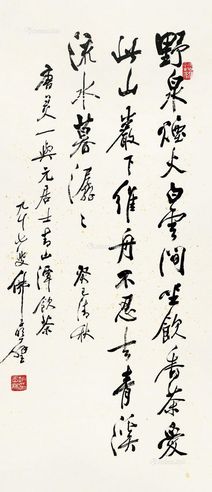 野泉煙火白雲間坐飲香茶愛
此山巖下維舟不忍去青溪
流水暮潺々 癸秋
唐灵一與元居士青山潭飲茶
九十七叟佛